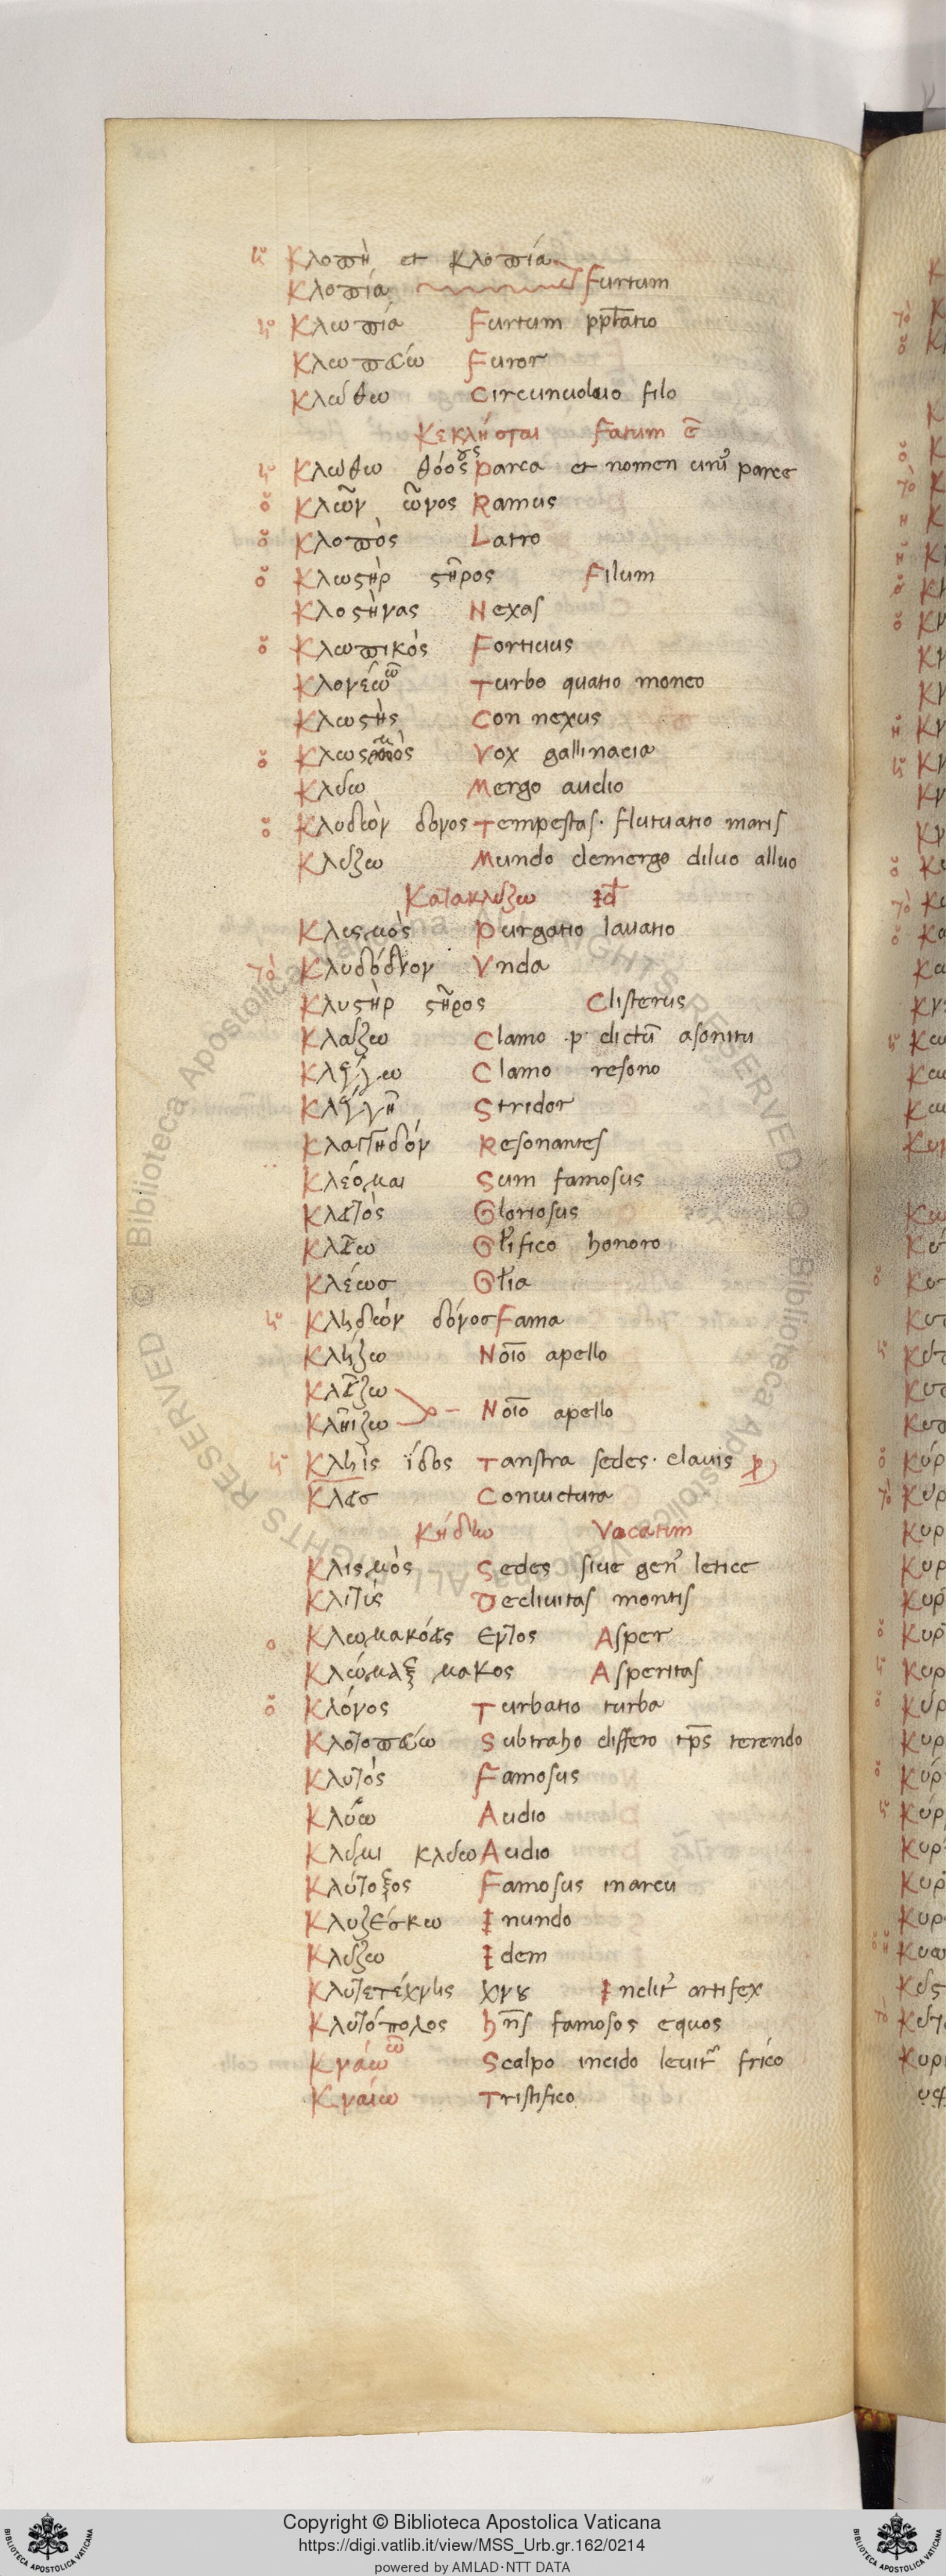 ἡ Κλοπὴ et κλοπία
Κλοπία Furtum
ἡ Κλωπία Furtum
Κλωπεύω Furor
Κλώθω Circunuoluo filo
Κεκλήσται Fatum ē
ἡ Κλώθω θόος οῦς Parca et nomen parce
ὁ Κλῶν ῶνος Ramus
ὁ Κλοπὸς Latro
ὁ Κλωστὴρ στῆρος Filum
Κλοστῆνας Nexas
ὁ Κλωπικός Forticius
Κλονέω ῶ Turbo quatio moneo
Κλωστὴς Con nexus
ὁ Vox gallinacia
Κλύω Mergo audio
ὁ Κλυδὼν δονος Tempestas. flutuatio maris
Κλύζω Mundo demergo diluo alluo
Κατακλύζω Id
Κλυσμὸς Purgatio lauatio
τὸ Κλυδώνιον Vnda
Κλυστὴρ στῆρος Clisterus
Κλάζω Clamo p dictū asonitu
Κλάγγω Clamo resono
Κλάγγη Stridor
Κλαγγηδόν Resonantes
Κλέομαι Sum famosus
Κλειτὸς Gloriosus
Κλείω Gl'ifico honoro
Κλέωσ Gl'ia
ἡ Κληδὼν δόνοσ Fama
Κλήζω Noīo apello
Κλείζω
Κλῆιζω Noīo apello
ἡ Κληὶς ίδος Tanstra sedes. clauis
Κλεισ Coniuctura
Vocatum
Κλισμὸς Sedes siue gen' letice
Κλιτὺς Decliuitas montis
ὁ Κλωμακόεις εντος Asper
Κλώμαξ μακος Asperitas
ὁ Κλόνος Turbatio turba
Κλοτοπεύω Subtraho differo tp̄s terendo
Κλυτός Famosus
Κλύω Audio
Κλῦμι κλύω Audio
Κλύτοξος Famosus inarcu
Κλυζέσκω Inundo
Κλύζω Idem
Κλυτετέχνης χνου Inclit' artifex
Κλυτόπολος hn̄s famosos equos
Κνάω ῶ Scalpo incido leuit' frico
Κναίω Tristifico
Copyright © Biblioteca Apostolica Vaticana
https://digi.vatlib.it/view/MSS_Urb.gr.162/0214
powered by AMLAD·NTT DATA